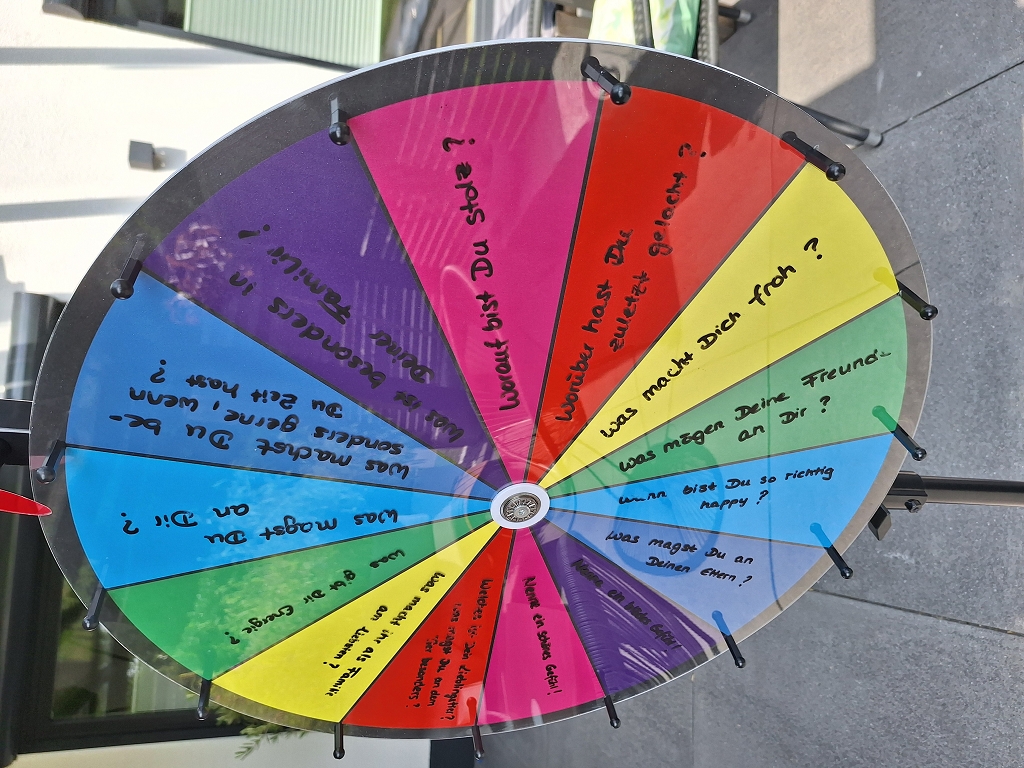 Worauf bist Du stolz?
Worüber hast Du
zuletzt gelacht?
Was macht Dich froh?
Was mögen Deine Freunde
an Dir?
Wann bist Du so richtig
happy?
Was magst Du an
Deinen Eltern?
Nenne ein blödes Gefühl!
Nenne ein schönes Gefühl!
Welches ist Dein Lieblingstier?
Was magst Du an dem
Tier besonders?
Was macht ihr als Familie
am liebsten?
Was gibt Dir Energie?
Was magst Du
an Dir?
Was machst Du be-
sonders gerne, wenn
Du Zeit hast?
Was ist besonders in
Deiner Familie?